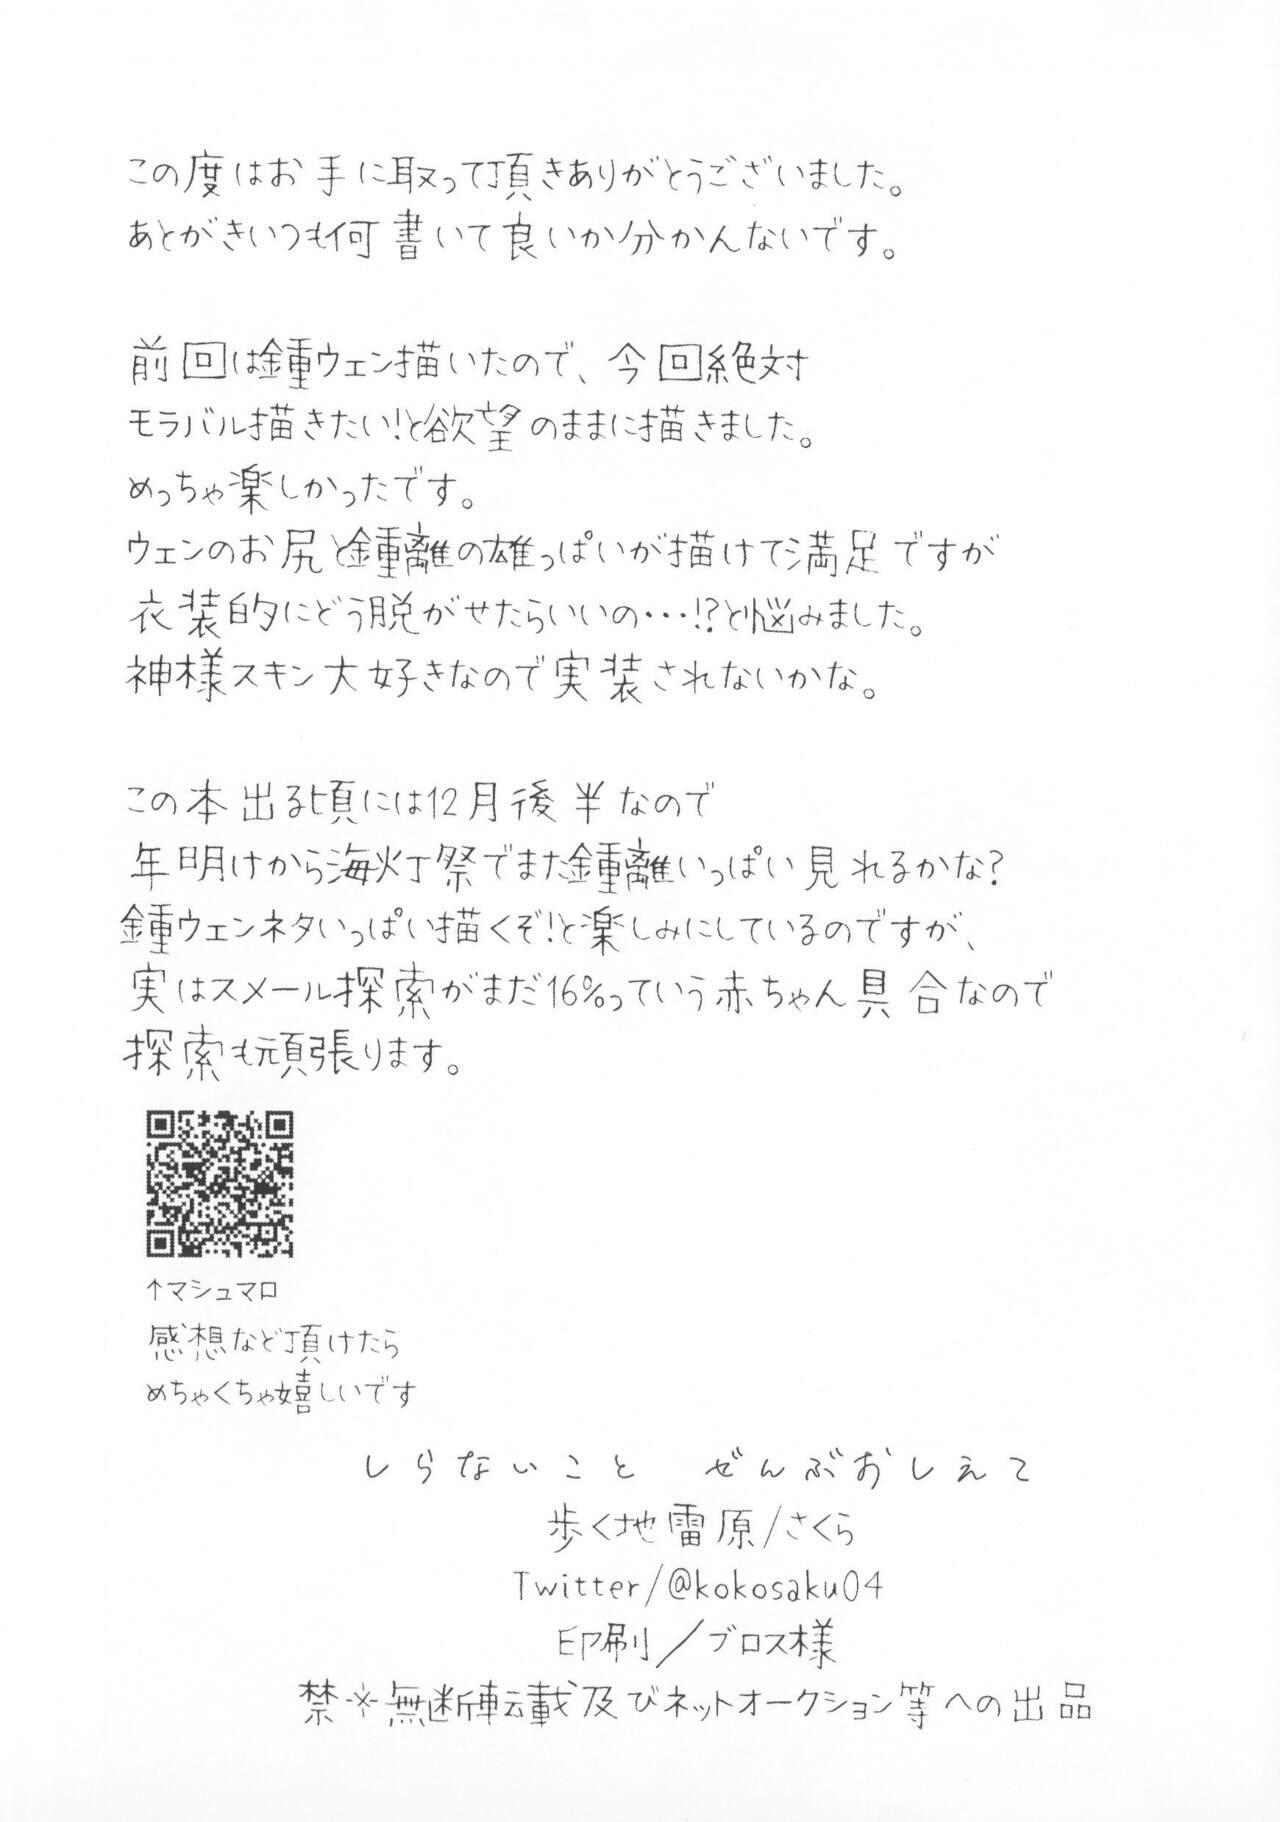 この度はお手に取って頂きありがとうございました。
あとがきいつも何書いて良いか分かんないです。
前回は鍾ウェン描いたので、今回絶対
モラバル描きたい!と欲望のままに描きました。
めっちゃ楽しかったです。
ウェンのお尻と鍾離の雄っぱいが描けて満足ですが
衣装的にどう脱がせたらいいの・・・!?と悩みました。
神様スキン大好きなので実装されないかな。
この本出る頃には12月後半なので
年明けから海灯祭でまた鍾離いっぱい見れるかな?
鍾ウェンネタいっぱい描くぞ!と楽しみにしているのですが、
実はスメール探索がまだ16%っていう赤ちゃん具合なので
探索も頑張ります。
↑マシュマロ
感想など頂けたら
めちゃくちゃ嬉しいです
しらないこと ぜんぶおしえて
歩く地雷原/さくら
Twitter/@kokosaku04
印刷/ブロス様
禁※無断転載及びネットオークション等への出品